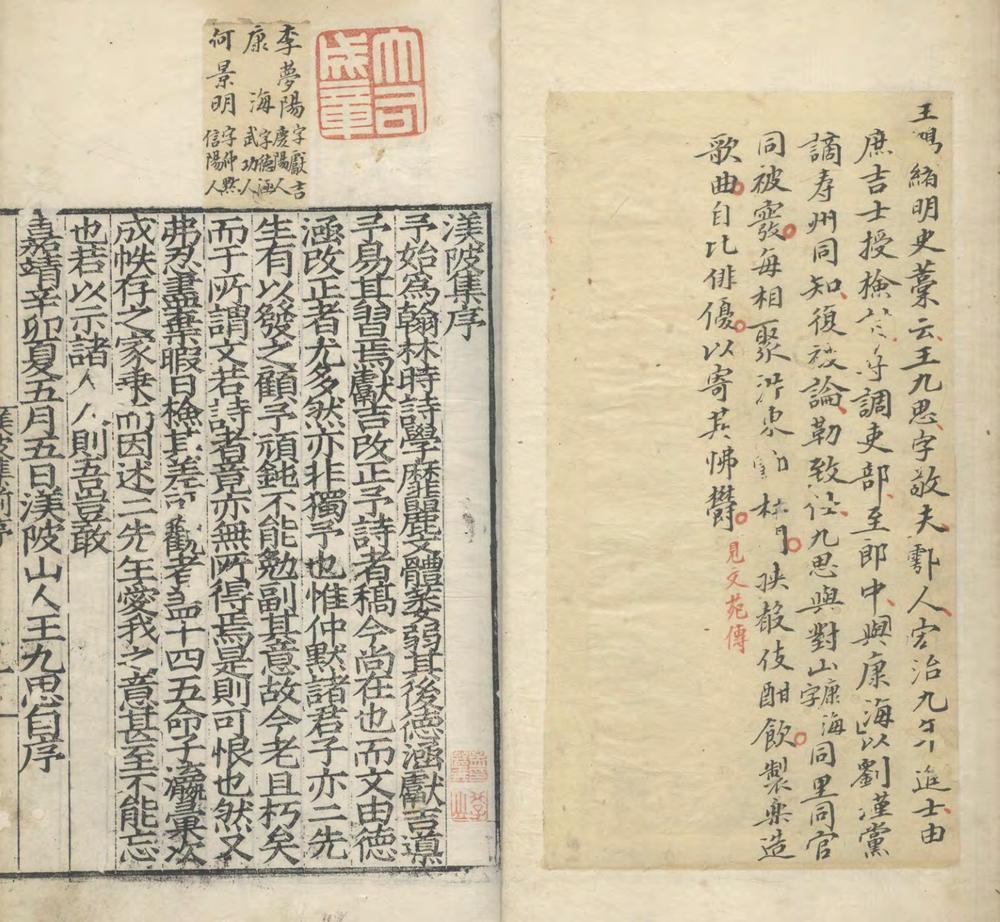 王鴻緒明史藁云王九思字敬夫鄠人宏治九年進士由
庶吉士授檢討尋調吏部至郎中與康海以劉瑾黨
謫寿州同知復被論勒致仕九思與對山康海字同里同官
同被竄每相聚沜東鄠杜間挾聲伎酣飲製樂造
歌曲自比俳優以寄其怫鬱見文苑傳
大司成章
李夢陽字獻吉慶陽人
康海字德涵武功人
何景明字仲默信陽人
渼陂集序
予始為翰林時詩學靡麗文體萎弱其後德涵獻吉導
予易其習焉獻吉改正予詩者稿今尚在也而文由德
涵改正者尤多然亦非獨予也惟仲默諸君子亦二先
生有以發之顧予頑鈍不能勉副其意故今老且朽矣
而于所謂文若詩者竟亦無所得焉是則可恨也然又
弗忍盡棄暇日檢其差可觀者盖十四五命子瀛彙次
成帙存之家乘而因述二先生愛我之意甚至不能忘
也若以示諸人人則吾豈敢
嘉靖辛卯夏五月五日渼陂山人王九思自序
渼陂集前序